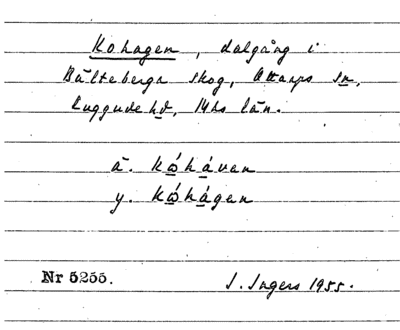 Kohagen, dalgång i
Bälteberga skog, Ottarps sn,
Luggude hd, Mhs län.
ä. kώ̲há̲ven
y. kώ̲há̲gen
Nr 5255.
I. Ingers 1955.